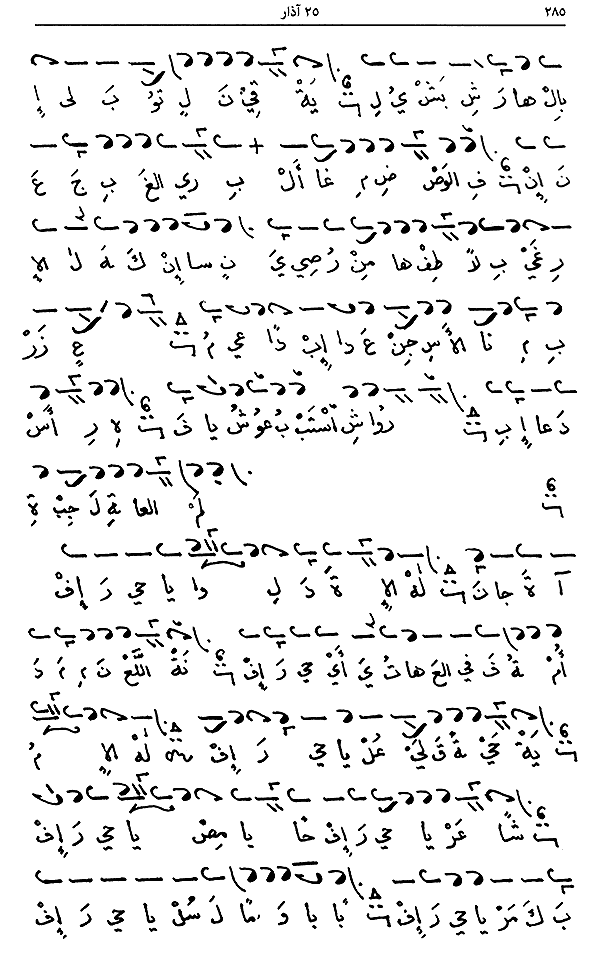 ٢٨٥ ٢٥ آذار
بِالْ ها رَ شِ بَشْ يُ لِ تْ يَةْ قِيْ نَ لٍ تو بَ لى إِ
نَ إِنْ تْ فِ الوَصْ ضِ مِ غا أَلْ بِ ري الغَ بِ جَ عَ
رِ غَيْ بِ لا طِفْ ها مِنْ رُ صي يَ نٍ سا إِنْ كَ هَ لا الإِ
بِ مِ نا الأَس جِنْ عَ دا إِبْ ذا عي مُ تْ عِ زَزْ
دَ عا إِ بِ تْ رُوا شِ اسْتَبْ بُ عو شُ يا قَ تْ هِ رِ أَسْ
تْ لَمْ العا ةِ لَ جِبْ ةِ
آ ةَ جا نَ تْ لَهْ الإِ ةَ دَ لِ وا يا حي رَ إِفْ
أُمْ ةُ قَ في العَ ها تُ يَ أَيْ حي رَ إِفْ تْ نَةْ اللَّعْ نَ مِ مَ دَ
تْ يَةْ حَيْ قَ لَيْ عَلْ يا حي رَ إِفْ لَهْ الإِ مُ
تْ شا عَرْ يا حي رَ إِفْ خا يا مِضْ يا حي رَ إِفْ
بَ كَ مَرْ يا حي رَ إِفْ تْ با با وَ ما لَ سُلْ يا حي رَ إِفْ